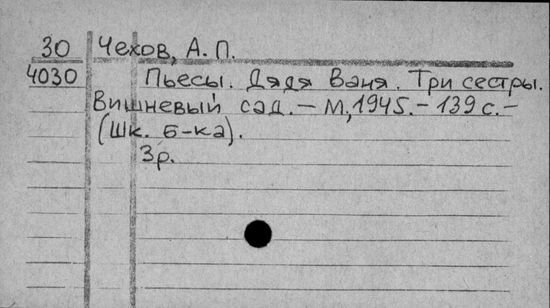 30 Чехов, А. П.
4030 Пьесы. Дядя Ваня. Три сестры.
Вишневый сад. – М, 1945. – 139 с. –
(Шк. б-ка).
3р.